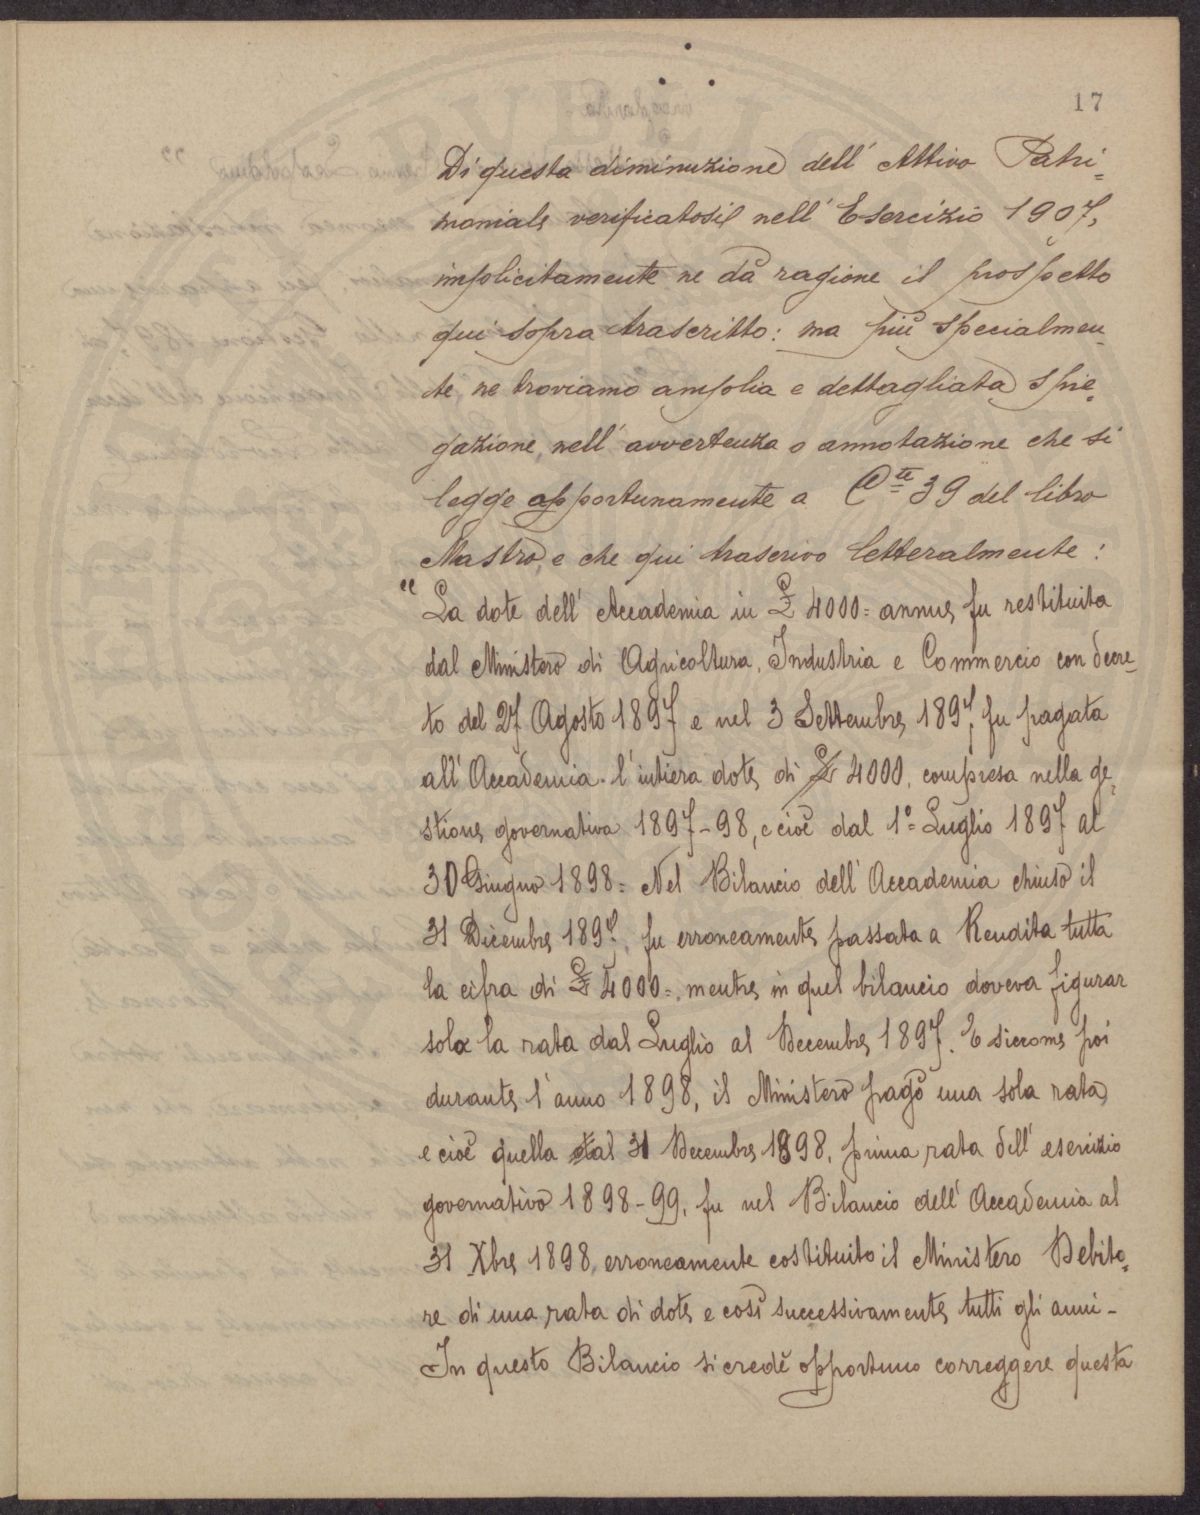 17
Di questa diminuzione dell' Attivo Patri=
moniale verificatosi nell' Esercizio 1907,
implicitamente ne dà ragione il prospetto
qui sopra trascritto: ma più specialmen
te ne troviamo amplia e dettagliata spie=
gazione, nell' avvertenza o annotazione che si
legge opportunamente a Cte 39 del libro
Mastro, e che qui trascrivo letteralmente:
"La dote dell' Accademia in £ 4000= annue, fu restituita
dal Ministero di Agricoltura, Industria e Commercio con decre=
to del 27 Agosto 1897 e nel 3 Settembre 1897, fu pagata
all' Accademia l' intiera dote di £ 4000, compresa nella ge=
stione governativa 1897-98, e cioè dal 1°= Luglio 1897 al
30 Giugno 1898= Nel Bilancio dell' Accademia chiuso il
31 Dicembre 1897, fu erroneamente passata a Rendita tutta
la cifra di £ 4000=, mentre in quel bilancio doveva figurar
sola la rata dal Luglio al Decembre 1897. E siccome poi
durante l' anno 1898, il Ministero pagò una sola rata
e cioè quella al 31 Decembre 1898, prima rata dell' esercizio
governativo 1898-99, fu nel Bilancio dell' Accademia al
31 Xbre 1898, erroneamente costituito il Ministero Debito=
re di una rata di dote e così successivamente tutti gli anni-
In questo Bilancio si credè opportuno correggere questa